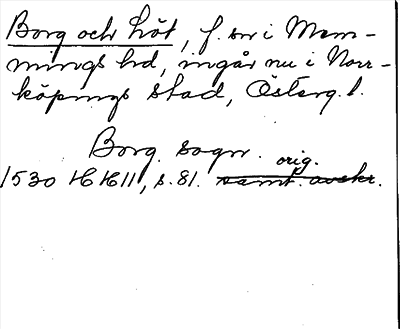 Borg och Löt, f. sn i Mem-
mings hd, ingår nu i Norr-
köpings stad, Österg. l.
Borg. sogn. orig.
1530 HH 11, s. 81. samt. avskr.